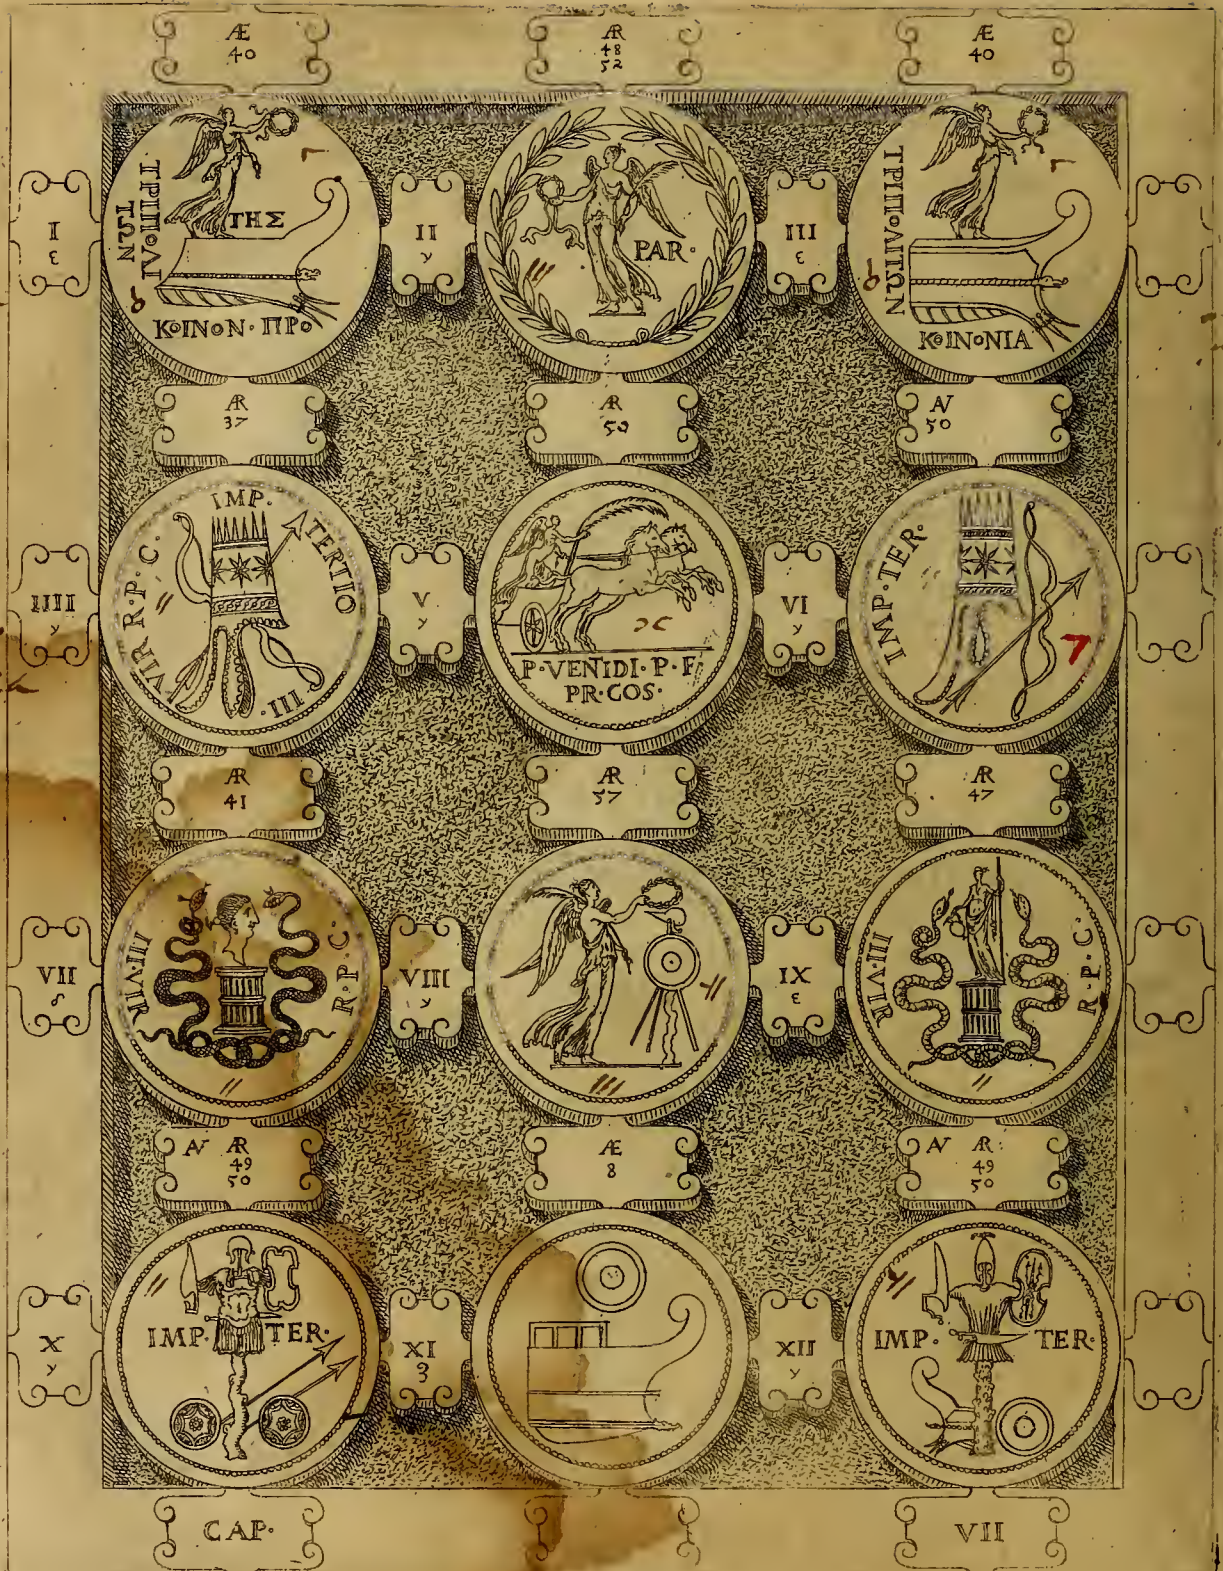 Æ
40
AR
48
52
Æ
40
I
ε
ΤΡΙΠΟΛΙ
ΤΩΝ
ΤΗΣ
ΚΟΙΝΟΝ·ΠΡΟ
II
γ
PAR·
III
ε
ΤΡΙΠΟΛΙΤΩΝ
ΚΟΙΝΟΝΙΑ
AR
37
AR
50
AV
50
IIII
γ
III·VIR·R·P·C·
IMP·
TERTIO
V
γ
P·VENTIDI·P·F·
PR·COS·
VI
γ
IMP·TER·
7
AR
41
AR
57
AR
47
VII
ς
III·VIR
R·P·C·
VIII
γ
IX
ε
III·VIR
R·P·C·
AV AR
49
50
Æ
8
AV AR
49
50
X
γ
IMP· TER·
XI
3
XII
γ
IMP· TER·
CAP·
VII